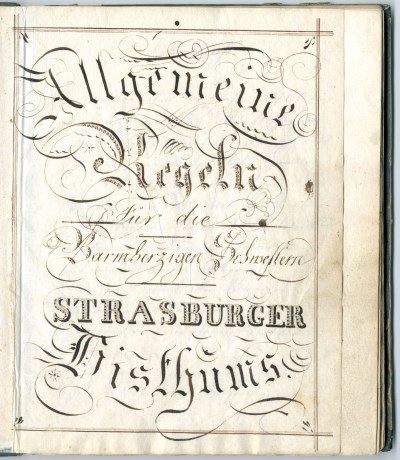 Allgemeine
Regeln
Für die
Barmherzigen Schwestern
STRASBURGER
Bisthums.